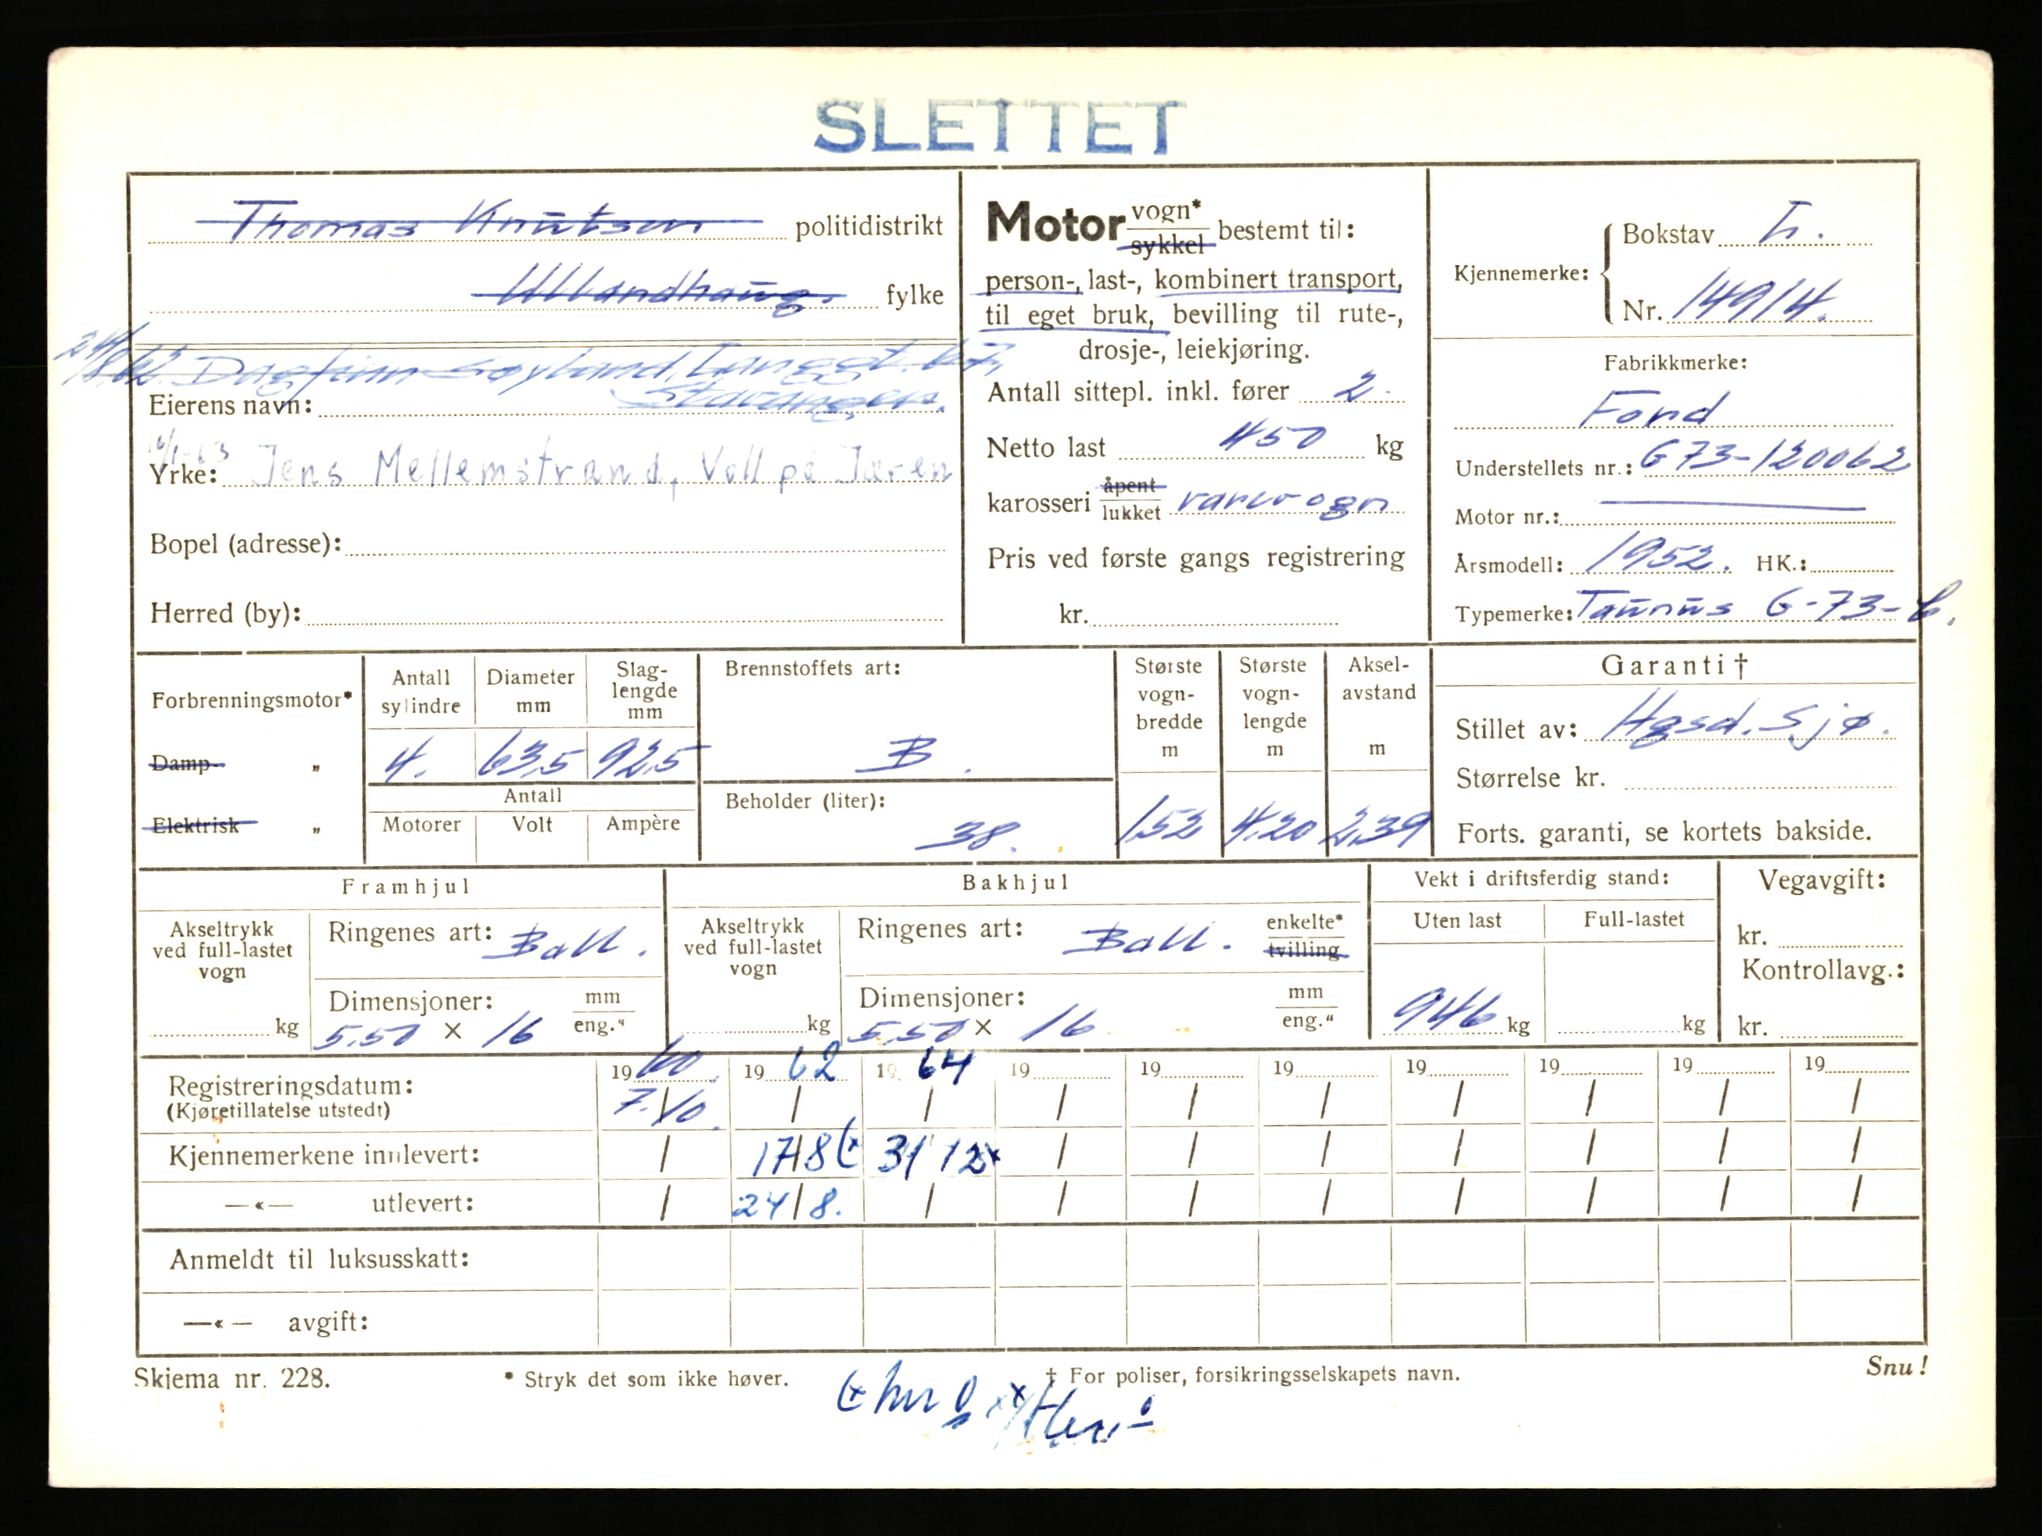 SLETTET
Thomas Knutsen politidistrikt
Ullandhaug. fylke
24/8.62. Dagfinn Søyland, Langgt. 67,
Stavanger.
Eierens navn:
10/1-63
Yrke: Jens Mellemstrand, Voll på Jæren
Bopel (adresse):
Herred (by):
Motor vogn* sykkel bestemt til:
person-, last-, kombinert transport,
til eget bruk, bevilling til rute-,
drosje-, leiekjøring.
Antall sittepl. inkl. fører 2.
Netto last 450 kg
karosseri åpent lukket varevogn
Pris ved første gangs registrering
kr.
Kjennemerke: Bokstav L.
Nr. 14914.
Fabrikkmerke:
Ford
Understellets nr.: G73-120062
Motor nr.:
Årsmodell: 1952. HK.:
Typemerke: Taunus G-73-C.
Forbrenningsmotor*
Damp- „
Elektrisk „
Antall sylindre
Diameter mm
Slag-lengde mm
4. 63,5 92,5
Antall
Motorer Volt Ampère
Brennstoffets art:
B.
Beholder (liter):
38.
Største vogn-bredde m
1,52
Største vogn-lengde m
4.20
Aksel-avstand m
2,39
Garanti †
Stillet av: Hgsd. Sjø.
Størrelse kr.
Forts. garanti, se kortets bakside.
Framhjul
Akseltrykk ved full-lastet vogn
kg
Ringenes art: Ball.
Dimensjoner: mm eng."
5.50 × 16
Bakhjul
Akseltrykk ved full-lastet vogn
kg
Ringenes art: Ball. enkelte* tvilling
Dimensjoner: mm eng."
5.50 × 16
Vekt i driftsferdig stand:
Uten last Full-lastet
946 kg kg
Vegavgift:
kr.
Kontrollavg.:
kr.
19 60. 19 62 19 64 19 19 19 19 19 19 19
Registreringsdatum: 7./10. / / / / / / / / /
(Kjøretillatelse utstedt)
Kjennemerkene innlevert: / 17/8 (x 31/12x / / / / / / /
—«— utlevert: / 24/8. / / / / / / / /
Anmeldt til luksusskatt:
—«— avgift:
Skjema nr. 228.
* Stryk det som ikke høver.
† For poliser, forsikringsselskapets navn.
Snu!